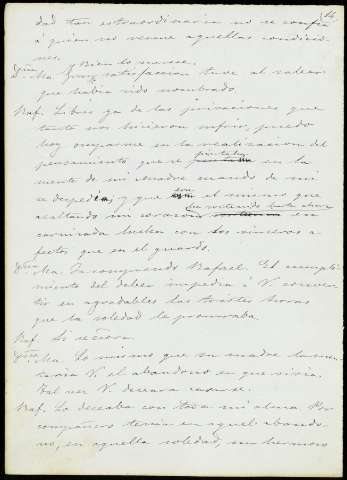 14
dad tan extraordinaria no se confia
á quien no reune aquellas condicio-
nes.
Bien lo merece.
D.ª Ma. Gran satisfaccion tuve al saber
que habia sido nombrado.
Raf. Libre ya de las privaciones que
tanto nos hicieron sufrir, puedo
hoy ocuparme en la realizacion del
pensamiento que se pintaba en la
mente de mi madre cuando de mi
se despedia, y que con el mismo que
asaltando mi corazon ha sostenido hasta ahora en
encarnizada lucha con los sinceros a-
fectos que en el guardo.
D.ª Ma. Comprendo Rafael. El cumpli-
miento del deber impedia á V. conver-
tir en agradables las tristes horas
que la soledad le procuraba.
Raf. Si señora.
D.ª Ma. Lo mismo que su madre lamen-
taria V. el abandono en que vivia.
Tal vez V. deseara casarse.
Raf. Lo deseaba con toda mi alma. Por
compañero tenia en aquel abando-
no, en aquella soledad, un hermoso